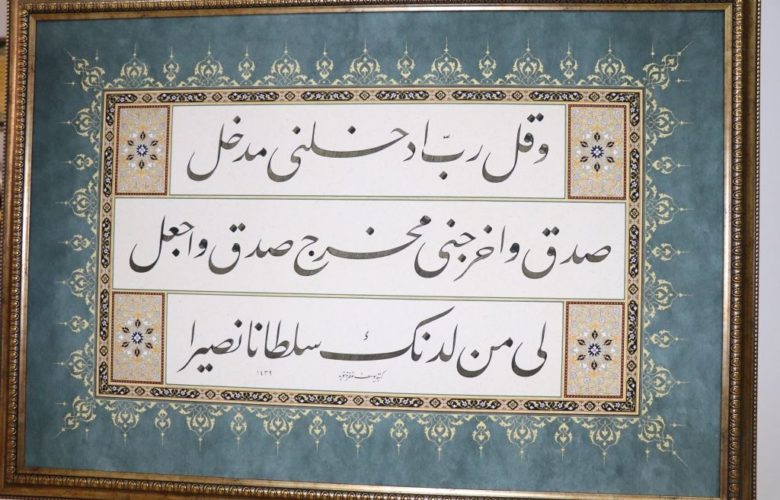 وقل ربّ ادخلنى مدخل
صدق واخرجنى مخرج صدق واجعل
لى من لدنك سلطانا نصيرا
١٤٣٩